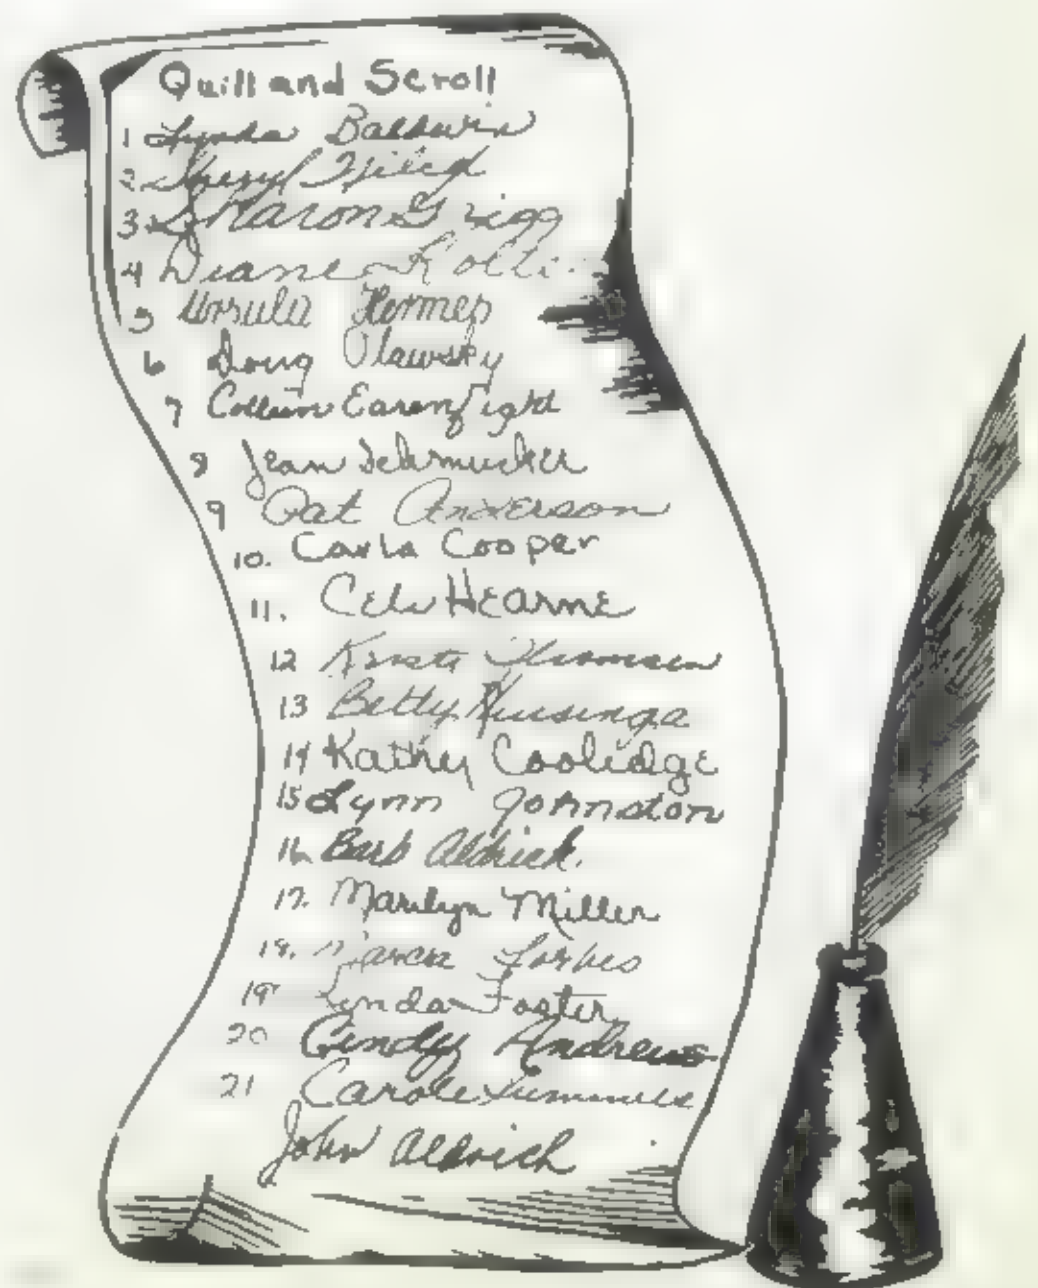 Quill and Scroll
1 Lynda Baldwin
2 Sheryl
3 Sharon Grigg
4 Diane
5 Ursula Hermes
6 Doug Olawsky
7 Colleen Earenfight
8 Jean Schmucker
9 Pat Anderson
10. Carla Cooper
11. Cele HEARNE
12 Kirsti Thomsen
13 Betty Huisinga
14 Kathy Coolidge
15 Lynn Johnston
16 Barb Aldrich.
17. Marilyn Miller
18. Forbes
19 Lynda Foster
20 Cindy Andrews
21 Carole
John Aldrich